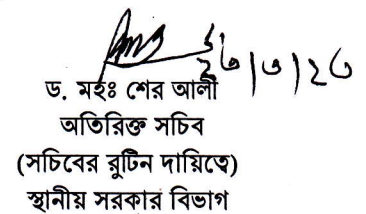 ২৩|৩|২৩
ড. মহঃ শের আলী
অতিরিক্ত সচিব
(সচিবের রুটিন দায়িত্বে)
স্থানীয় সরকার বিভাগ